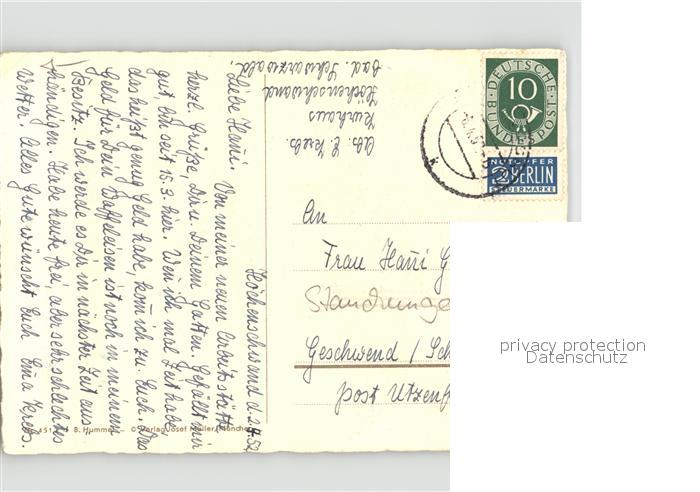 Höchenschwand d. 2.4.52
Liebe Hanni.
Von meiner neuen Arbeitsstätte
herzl. Grüße, Dir u. Deinem Gatten. Gefällt mir
gut, bin seit 15.3. hier. Wen ich mal Zeit habe,
das heißt genug Geld habe, kom ich zu Euch. Das
Geld für Dein Waffeleisen ist noch in meinem
Besitz. Ich werde es Dir in nächster Zeit aus
händigen. Habe heute frei, aber sehr schlechtes
Wetter. Alles Gute wünscht Euch Krebs.
Abs. E. Krebs.
Kurhaus
Höchenschwand
Bad. Schwarzwald.
DEUTSCHE
BUNDESPOST
10
NOTOPFER
2 BERLIN
STEUERMARKE
An
Frau Hanni G
Geschwend / Sch
post Utzenf
B. Hummel © Verlag Josef Müller, München
privacy protection
Datenschutz